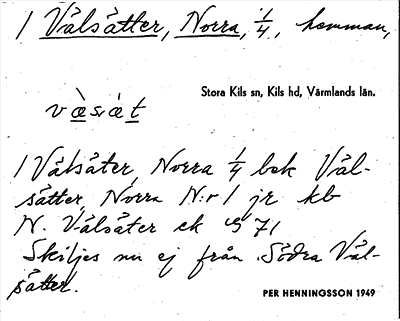 1 Vålsätter, Norra, 1/4, hemman,
Stora Kils sn, Kils hd, Värmlands län.
1 Vålsäter, Norra 1/4 bok Vål-
sätter, Norra N:r 1 jr kb
N. Vålsäter ek 71
Skiljes nu ej från Södra Vål-
sätter.
PER HENNINGSSON 1949